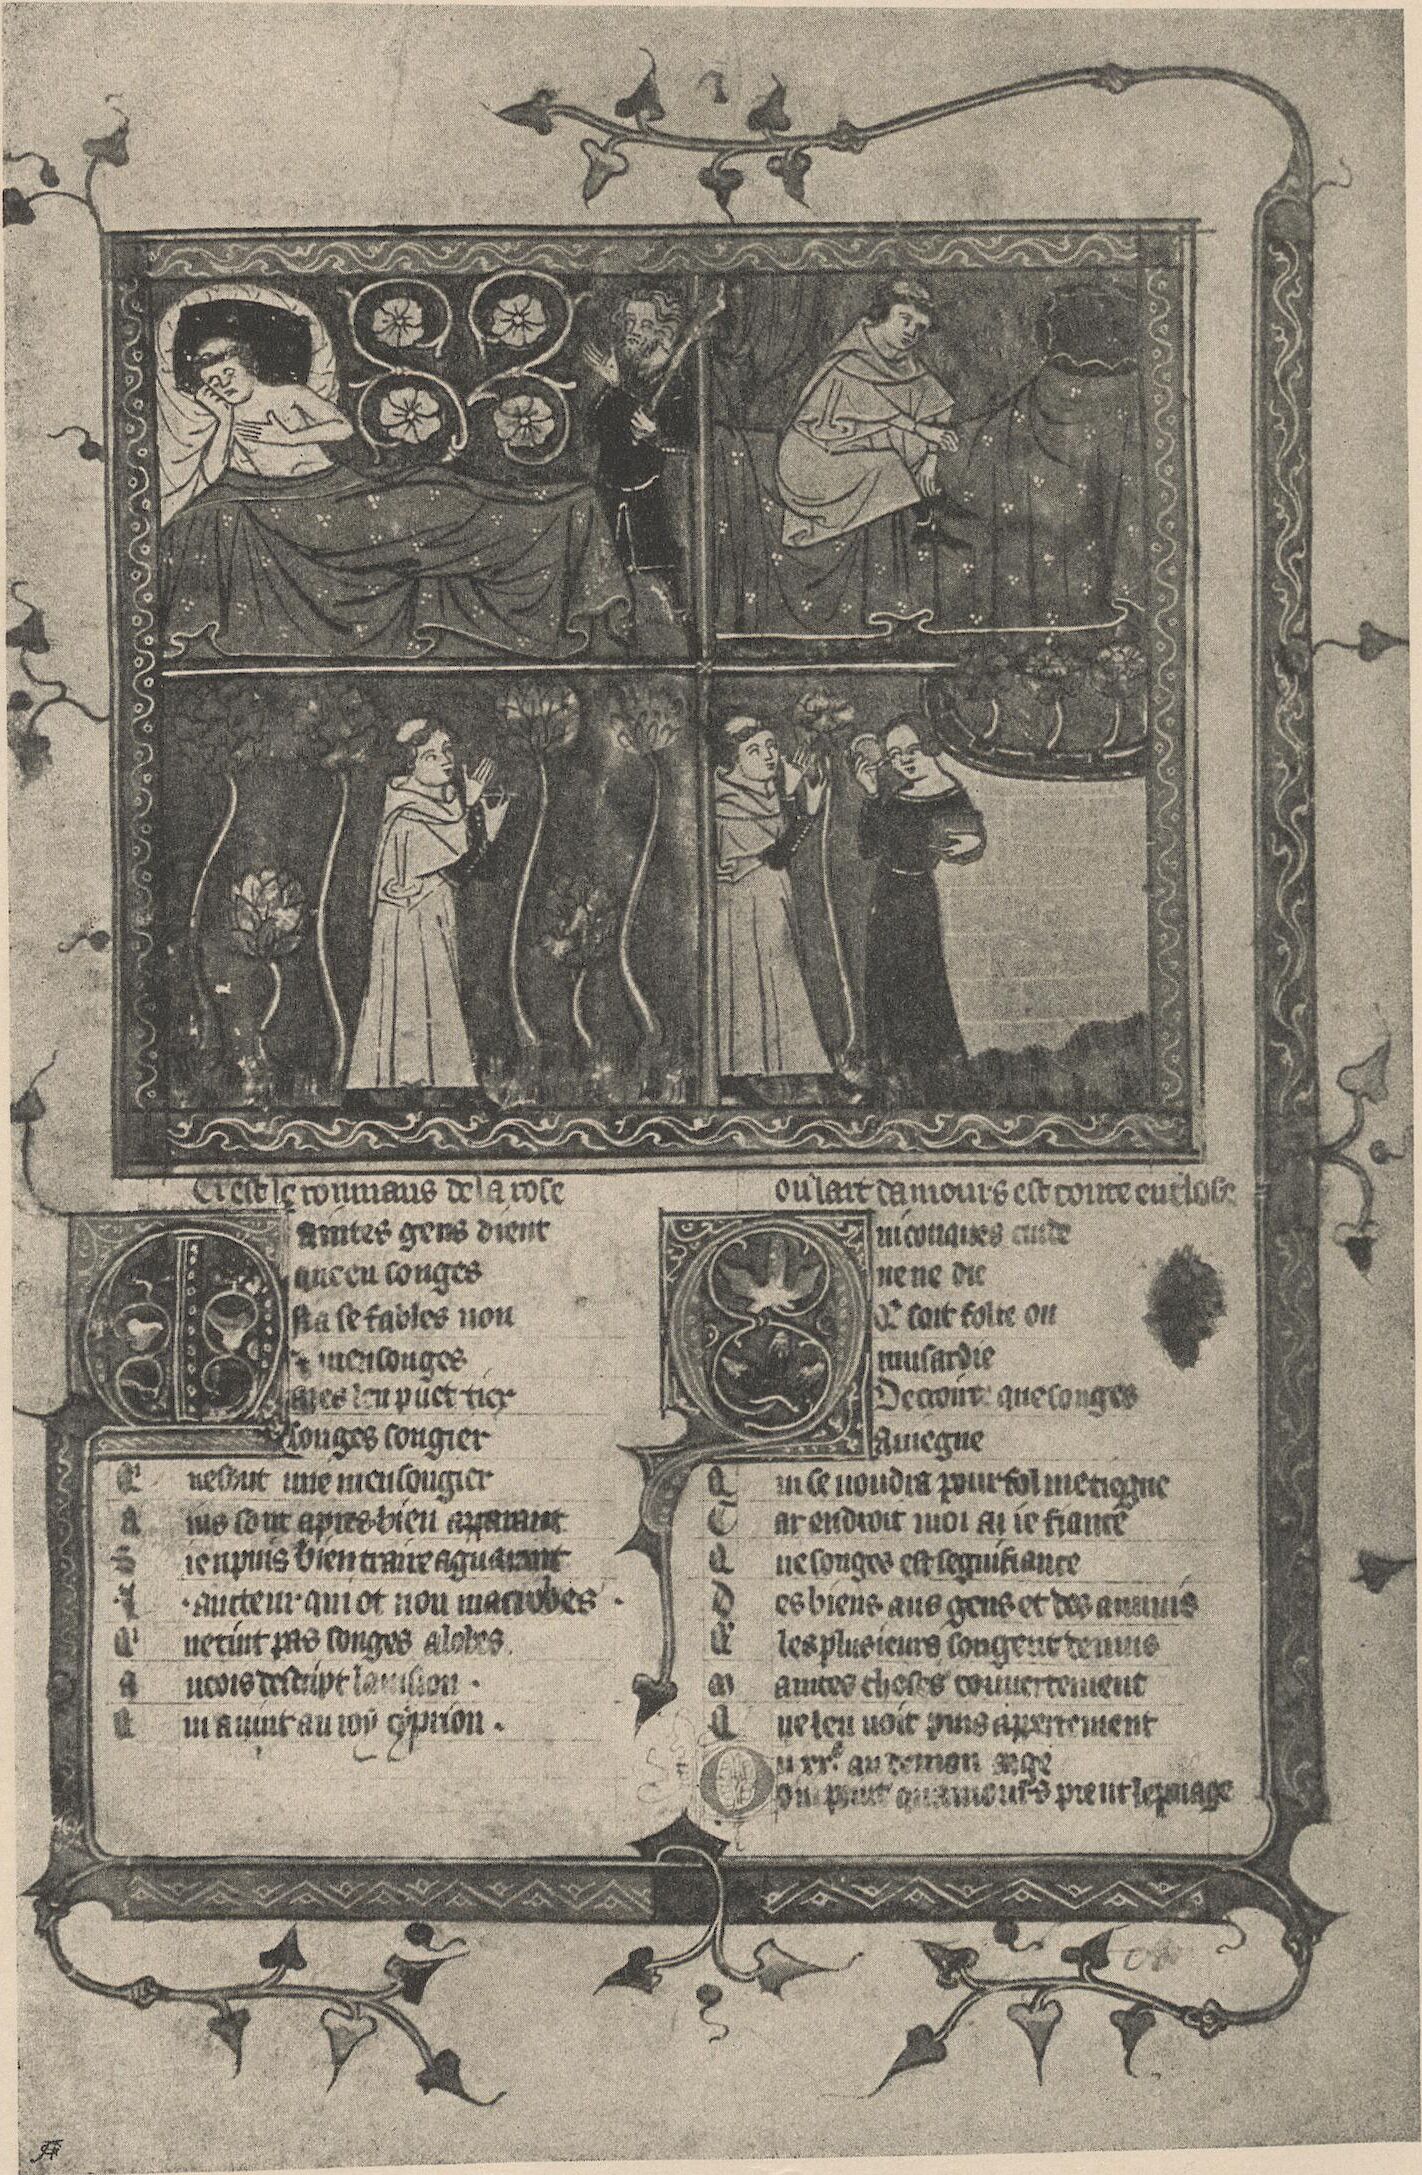 C'est le roumans de la rose
ou lart damours est toute enclose
Maintes gens dient
que en songes
Na se fables non
& mensonges
Mes len puet tiex
songes songier
Q ne sont mie mensongier
A ins sont apres bien apparant
S i en puis bien traire a guarant
. I . aucteur qui ot non macrobes .
Q ne tint pas songes a lobes .
A ncois descript la vision .
Q ui avint au roy cyprion .
Quiconques cuide
ne ne die
Q soit folie ou
musardie
De croire que songes
aviegne
Q ui se voudra pour fol me tiegne
C ar endroit moi ai ie fiance
Q ue songes est segnifiance
D es biens aus gens et des anuis
Q les plusieurs songent de nuis
M aintes choses couvertement
Q ue len voit puis appertement
Ou xxe an de mon aage
Ou point quamours prent le paage